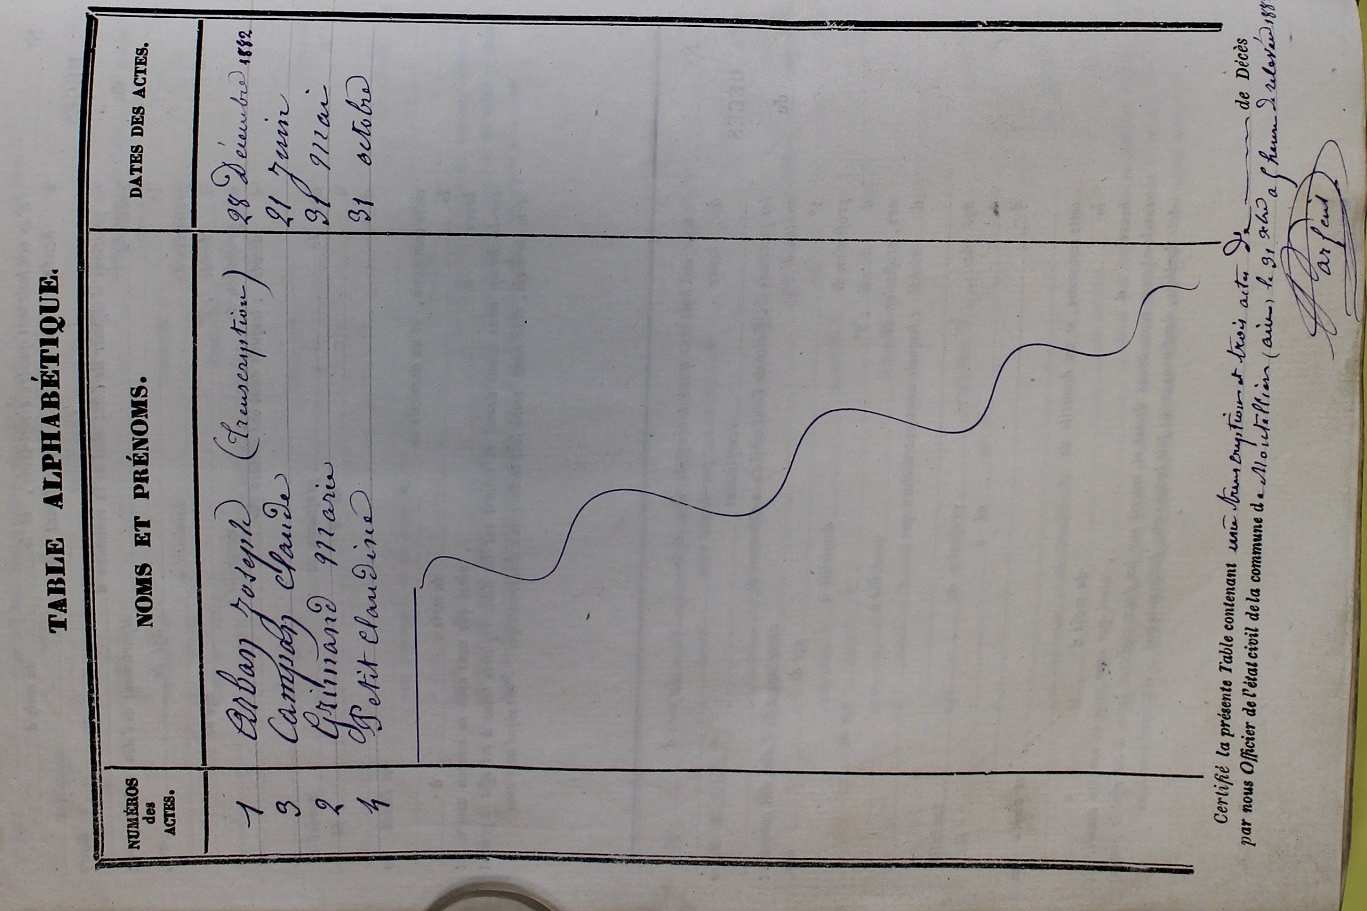 TABLE ALPHABÉTIQUE.
NUMÉROS des ACTES. NOMS ET PRÉNOMS. DATES DES ACTES.
1 Arban Joseph (transcription) 28 Décembre 1882
3 Campan Claude 21 Juin
2 Grimand Marie 31 Mai
4 Petit Claudine 31 octobre
Certifié la présente Table contenant une transcription et trois actes de de Décès
par nous Officier de l'état civil de la commune de (ain) le 31 xbre a heure